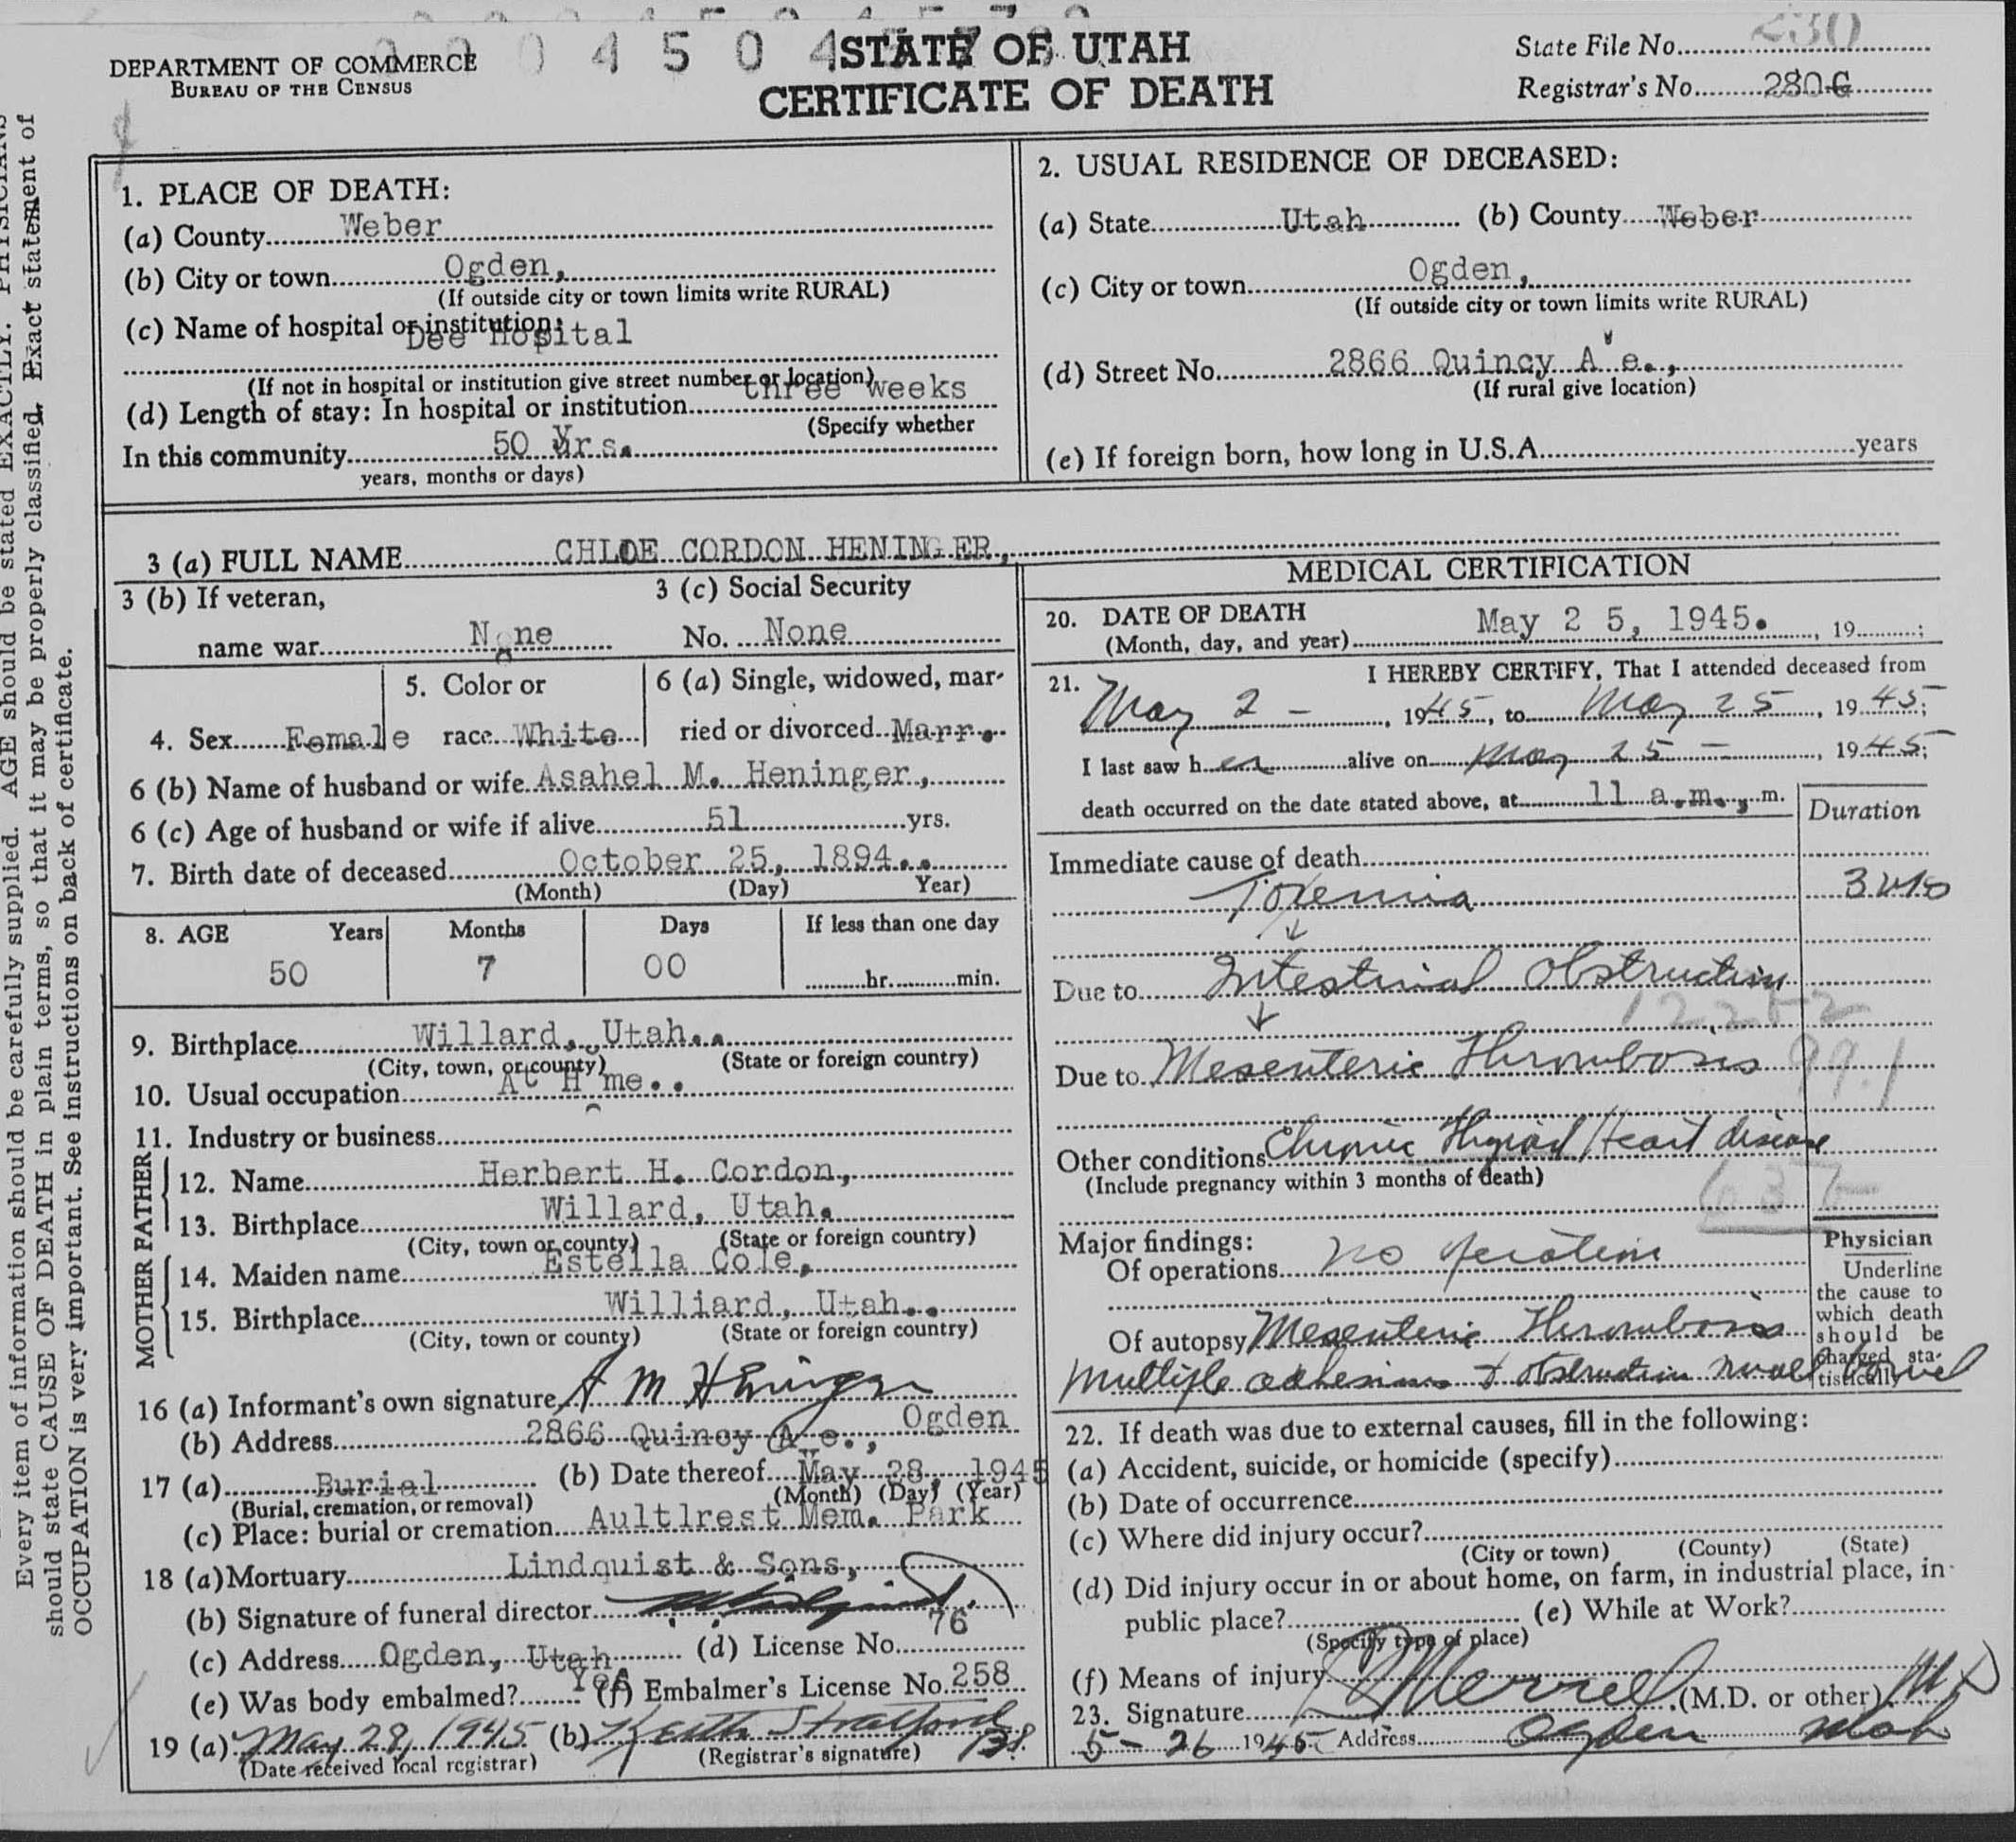 DEPARTMENT OF COMMERCE
BUREAU OF THE CENSUS
STATE OF UTAH
CERTIFICATE OF DEATH
State File No. 230
Registrar's No. 280-G
Every item of information should be carefully supplied. AGE should be stated EXACTLY. PHYSICIANS
should state CAUSE OF DEATH in plain terms, so that it may be properly classified. Exact statement of
OCCUPATION is very important. See instructions on back of certificate.
1. PLACE OF DEATH:
(a) County Weber
(b) City or town Ogden,
(If outside city or town limits write RURAL)
(c) Name of hospital or institution:
Dee Hospital
(If not in hospital or institution give street number or location)
(d) Length of stay: In hospital or institution three weeks
(Specify whether
In this community 50 yrs.
years, months or days)
2. USUAL RESIDENCE OF DECEASED:
(a) State Utah (b) County Weber
(c) City or town Ogden,
(If outside city or town limits write RURAL)
(d) Street No. 2866 Quincy Ave.,
(If rural give location)
(e) If foreign born, how long in U.S.A. years
3 (a) FULL NAME CHLOE CORDON HENINGER,
3 (b) If veteran,
name war None
3 (c) Social Security
No. None
4. Sex Female
5. Color or
race White
6 (a) Single, widowed, mar-
ried or divorced Marr.
6 (b) Name of husband or wife Asahel M. Heninger,
6 (c) Age of husband or wife if alive 51 yrs.
7. Birth date of deceased October 25, 1894..
(Month) (Day) Year)
8. AGE Years Months Days If less than one day
50 7 00 hr. min.
9. Birthplace Willard, Utah..
(City, town, or county) (State or foreign country)
10. Usual occupation At Home..
11. Industry or business
FATHER
12. Name Herbert H. Cordon,
13. Birthplace Willard, Utah.
(City, town or county) (State or foreign country)
MOTHER
14. Maiden name Estella Cole,
15. Birthplace Williard, Utah..
(City, town or county) (State or foreign country)
16 (a) Informant's own signature A M Heninger
(b) Address 2866 Quincy Ave., Ogden
17 (a) Burial (b) Date thereof May 28, 1945
(Burial, cremation, or removal) (Month) (Day) (Year)
(c) Place: burial or cremation Aultlrest Mem. Park
18 (a) Mortuary Lindquist & Sons,
(b) Signature of funeral director
(c) Address Ogden, Utah (d) License No. 76
(e) Was body embalmed? Yes (f) Embalmer's License No. 258
19 (a) May 28, 1945 (b) Keith Stratford
(Date received local registrar) (Registrar's signature)
MEDICAL CERTIFICATION
20. DATE OF DEATH
(Month, day, and year) May 2 5, 1945. , 19 ;
21. I HEREBY CERTIFY, That I attended deceased from
May 2 - , 1945, to May 25 , 1945;
I last saw her alive on May 25 - , 1945;
death occurred on the date stated above, at 11 a.m., m.
Duration
Immediate cause of death
Toxemia
Due to Intestinal Obstruction
12252
Due to Mesenteric Thrombosis 99.1
Other conditions Chronic Thyroid Heart disease
(Include pregnancy within 3 months of death)
Major findings:
Of operations no operation
Of autopsy Mesenteric Thrombosis
Multiple adhesions & obstruction small bowel
Physician
Underline
the cause to
which death
should be
charged sta-
tistically
22. If death was due to external causes, fill in the following:
(a) Accident, suicide, or homicide (specify)
(b) Date of occurrence
(c) Where did injury occur?
(City or town) (County) (State)
(d) Did injury occur in or about home, on farm, in industrial place, in
public place? (e) While at Work?
(Specify type of place)
(f) Means of injury
23. Signature Merrell (M.D. or other) MD
5-26 1945 Address Ogden Utah